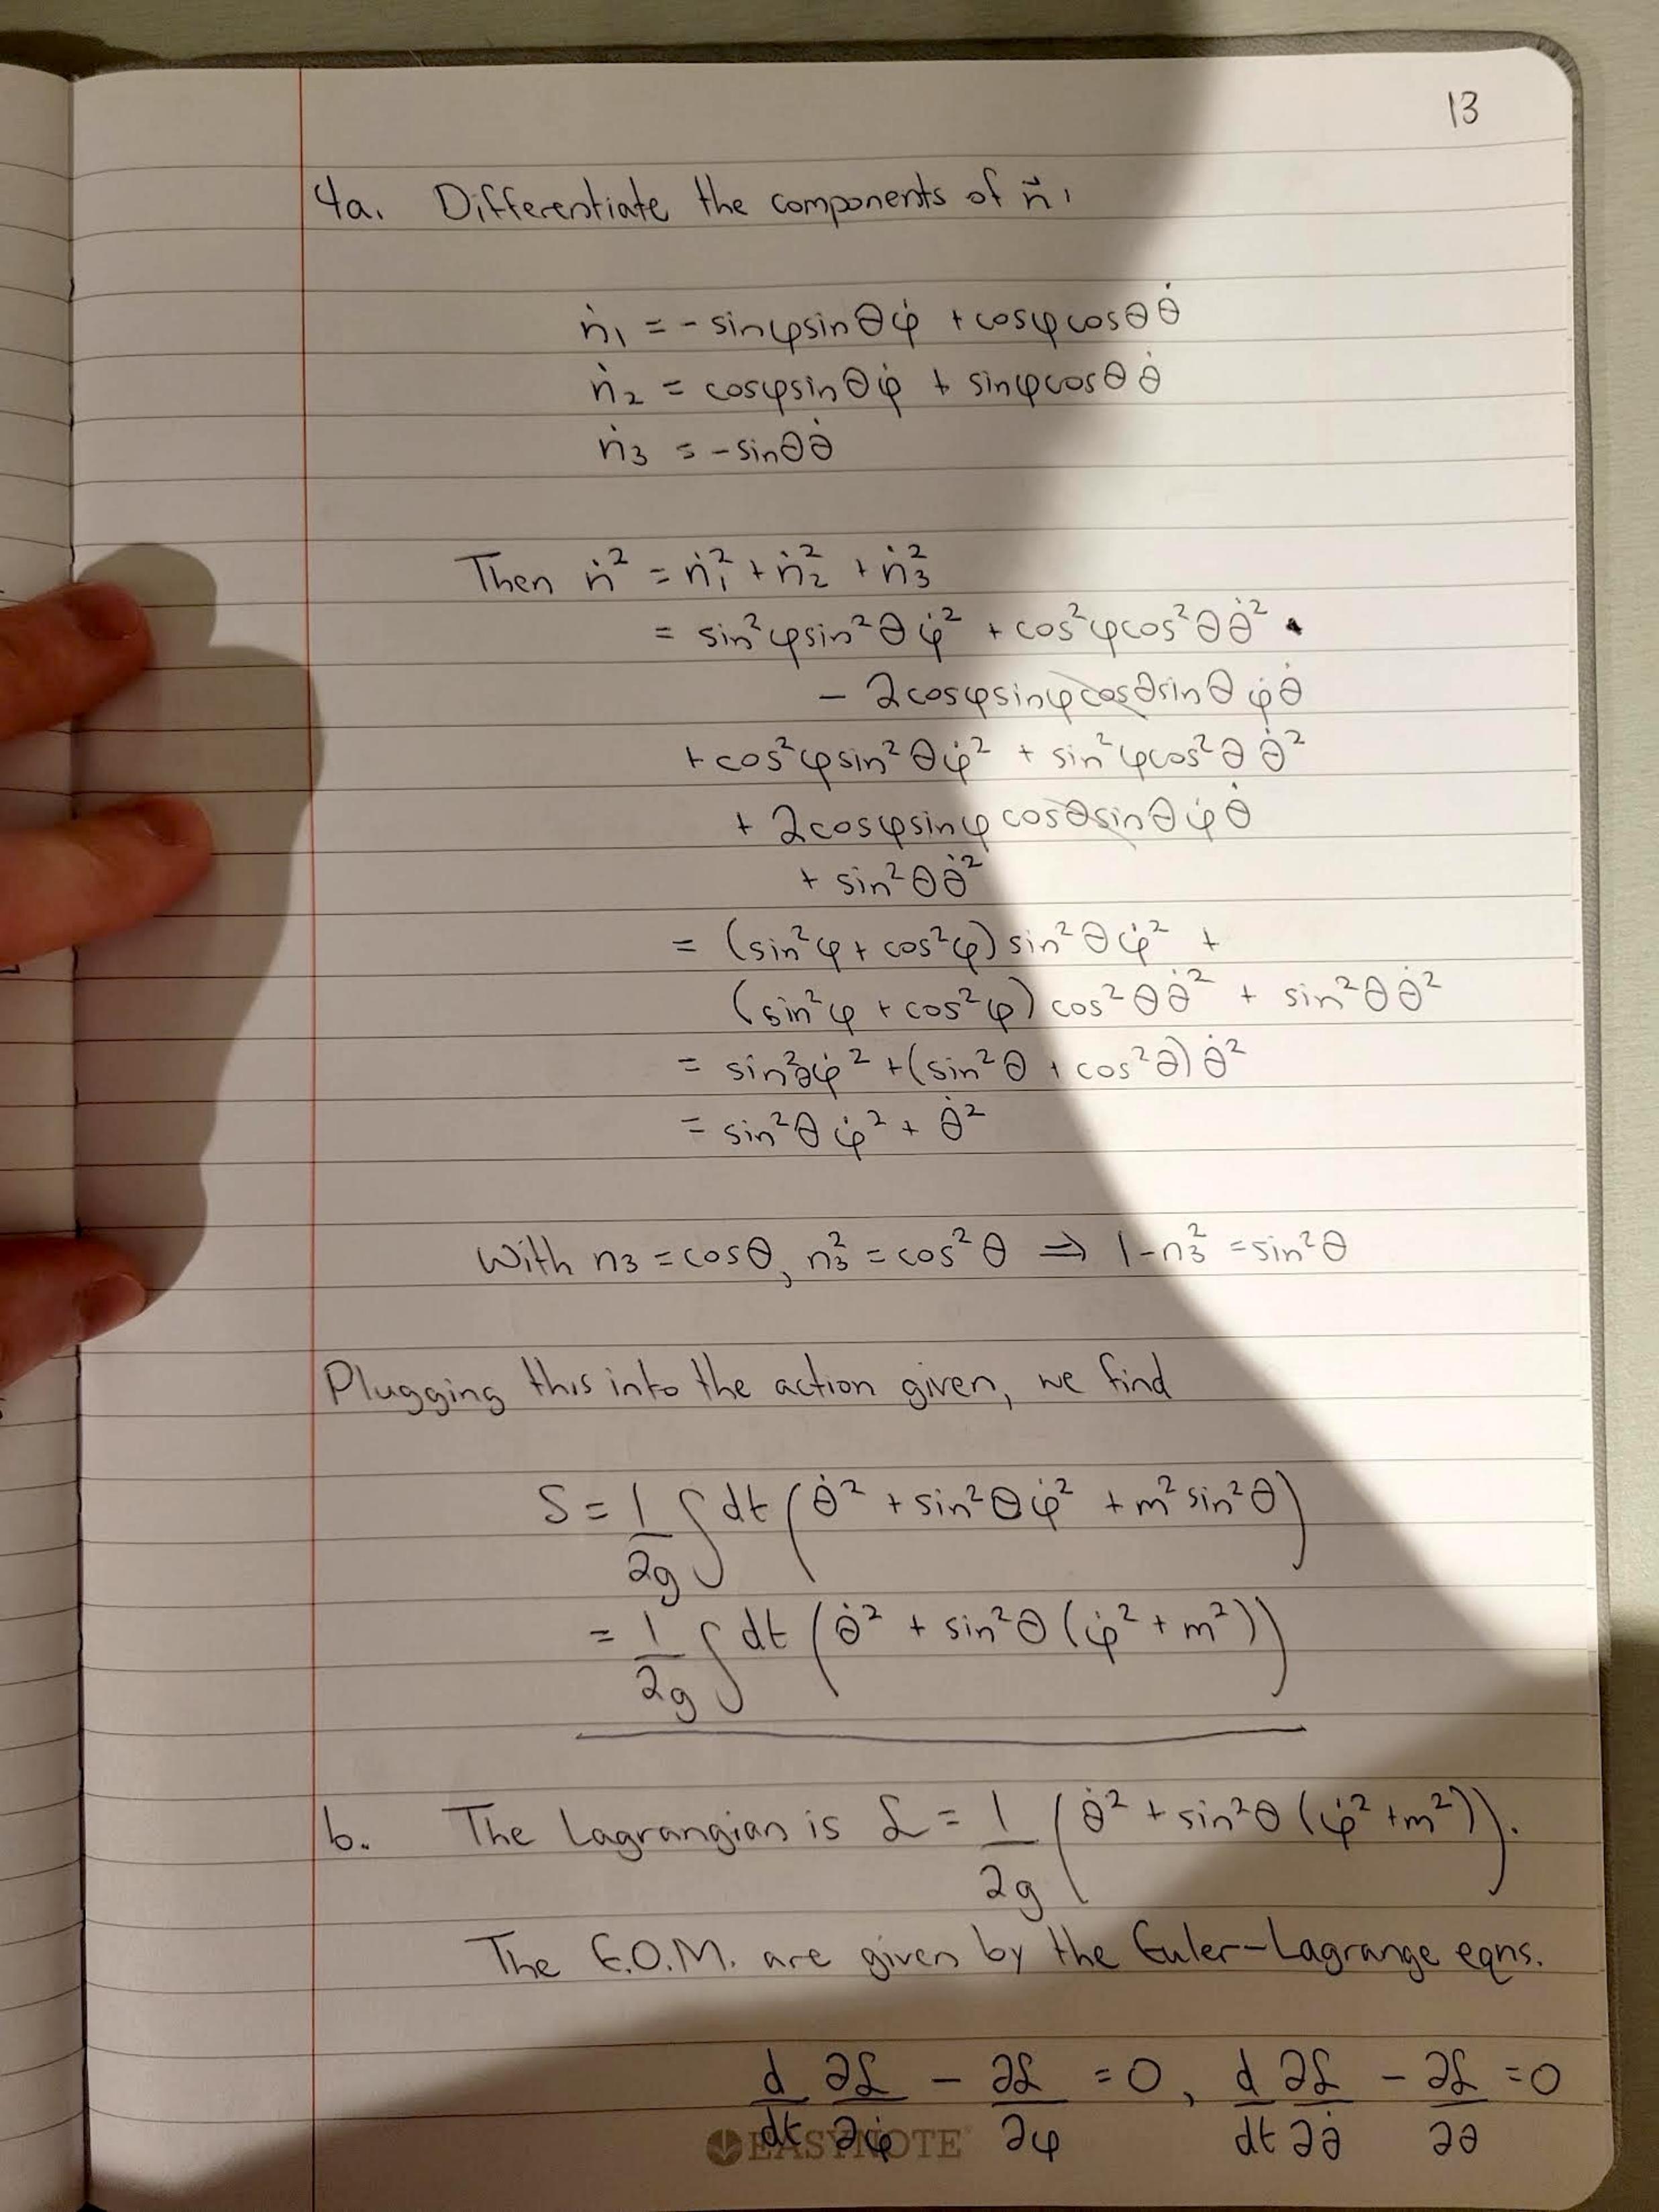 13
4a. Differentiate the components of n⃗.
ṅ₁ = - sinφsinθφ̇ + cosφcosθθ̇
ṅ₂ = cosφsinθφ̇ + sinφcosθθ̇
ṅ₃ = -sinθθ̇
Then ṅ² = ṅ₁² + ṅ₂² + ṅ₃²
= sin²φsin²θφ̇² + cos²φcos²θθ̇²
- 2cosφsinφcosθsinθφ̇θ̇
+ cos²φsin²θφ̇² + sin²φcos²θθ̇²
+ 2cosφsinφcosθsinθφ̇θ̇
+ sin²θθ̇²
= (sin²φ + cos²φ) sin²θφ̇² +
(sin²φ + cos²φ) cos²θθ̇² + sin²θθ̇²
= sin²θφ̇² + (sin²θ + cos²θ) θ̇²
= sin²θφ̇² + θ̇²
With n₃ = cosθ, n₃² = cos²θ ⇒ 1-n₃² = sin²θ
Plugging this into the action given, we find
S = 1/2g ∫ dt (θ̇² + sin²θφ̇² + m² sin²θ)
= 1/2g ∫ dt (θ̇² + sin²θ (φ̇² + m²))
b. The Lagrangian is ℒ = 1/2g (θ̇² + sin²θ (φ̇² + m²)).
The E.O.M. are given by the Euler-Lagrange eqns.
d/dt ∂ℒ/∂φ̇ - ∂ℒ/∂φ = 0, d/dt ∂ℒ/∂θ̇ - ∂ℒ/∂θ = 0
EASYNOTE